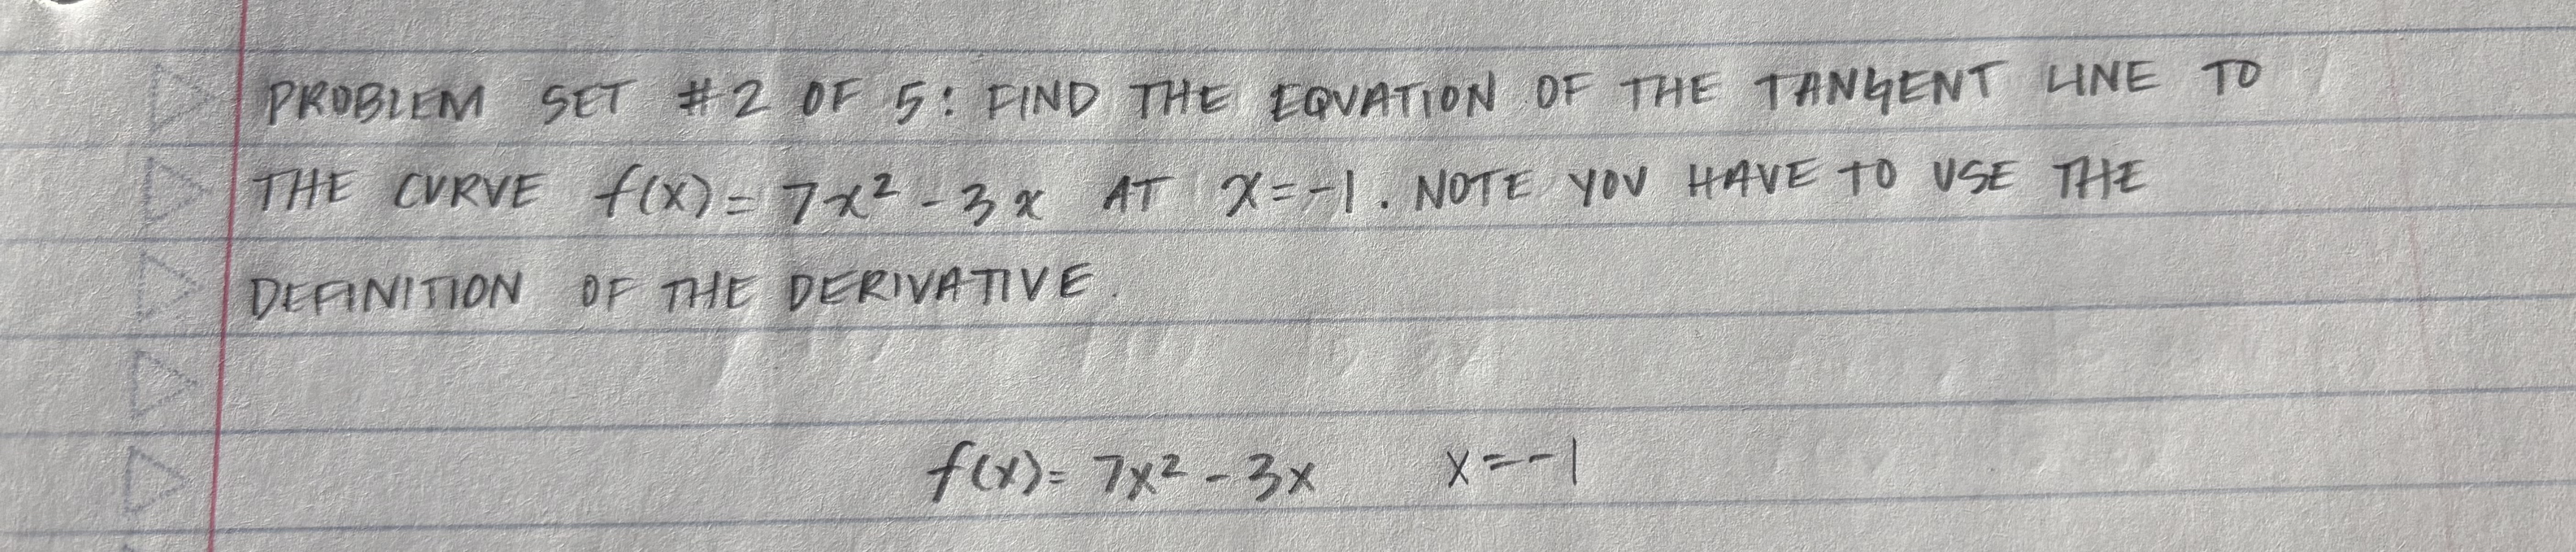 PROBLEM SET #2 OF 5: FIND THE EQUATION OF THE TANGENT LINE TO
THE CURVE f(x) = 7x² - 3x AT x = -1. NOTE YOU HAVE TO USE THE
DEFINITION OF THE DERIVATIVE.
f(x) = 7x² - 3x x = -1